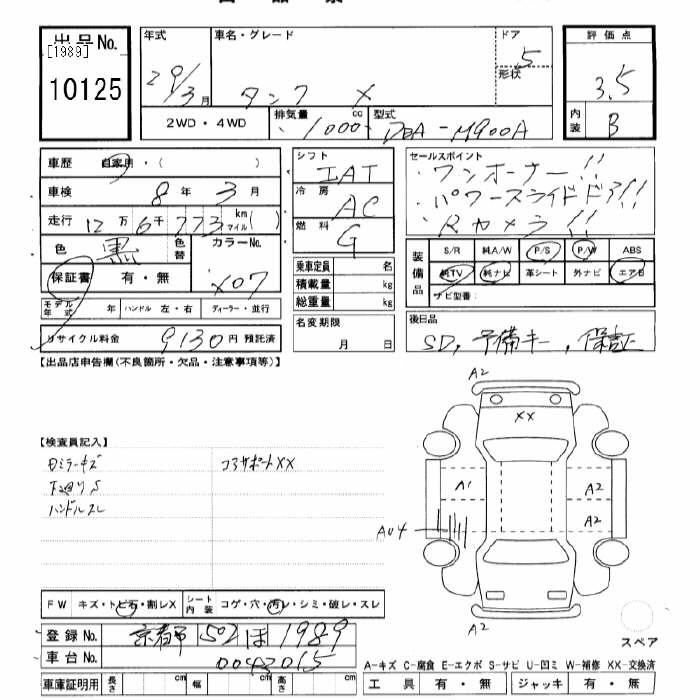 出品No.
[1989]
10125
年式 29/3月
車名・グレード タンク X
ドア 5
形状
2WD・4WD
排気量 1000 cc
型式 DBA-M900A
評価点 3.5
内装 B
車歴 自家用・( )
車検 8年 3月
走行 12万6千773 km マイル( )
色 黒 色替
カラーNo. X07
保証書 有・無
モデル年式 年 ハンドル 左・右 ディーラー・並行
リサイクル料金 9130円 預託済
シフト IAT
冷房 AC
燃料 G
乗車定員 名
積載量 kg
総重量 kg
名変期限 月 日
セールスポイント
ワンオーナー!!
パワースライドドア!!!
Rカメラ!!
装備品 S/R 純A/W P/S P/W ABS
純TV 純ナビ 革シート 外ナビ エアB
ナビ型番:
後日品
SD, 予備キー, 保証
【出品店申告欄(不良箇所・欠品・注意事項等)】
【検査員記入】
ロミラーキズ
下廻りS
ハンドルスレ
コアサポートXX
A2
XX
A1
A2
A2
A04
A2
スペア
FW キズ・トビ石・割レX
シート内装 コゲ・穴・汚レ・シミ・破レ・スレ
登録No. 京都 502 ほ 1989
車台No. 0043015
車庫証明用 長さ cm 幅 cm 高さ cm
A-キズ C-腐食 E-エクボ S-サビ U-凹ミ W-補修 XX-交換済
工具 有・無 ジャッキ 有・無